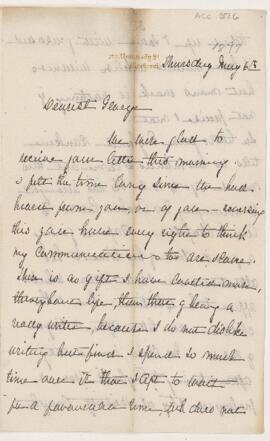 ACC 3526
1897
Thursday May 6th
Dearest George
We were glad to
receive your letter this morning
I felt the time long since we had
heard from you or of you
this you have every right to think
my
There is as gift I have
throughout life, than that of being a
ready writer, because I do not dislike
writing but find I spend so much
time over it that I apt to wait
for a time which does not